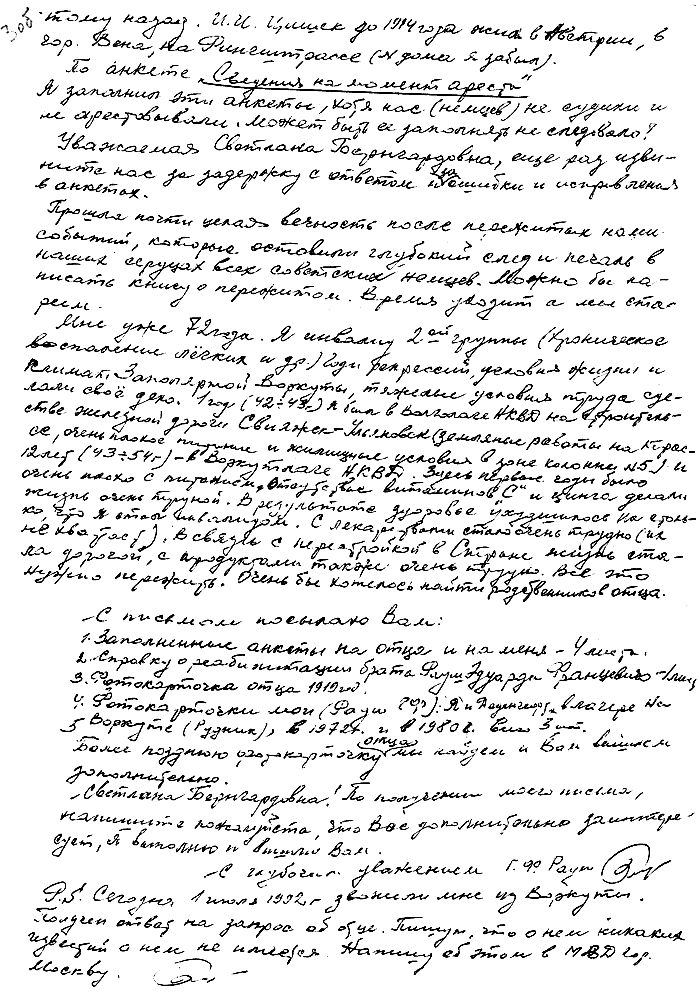 Зоб
тому назад. И.И. Цишек до 1914 года жил в Австрии, в
гор. Вена, на Рингштрассе (№ дома я забыл).
По анкете „Сведения на момент ареста"
Я заполнил эти анкеты, хотя нас (немцев) не судили и
не арестовывали. Может быть ее заполнять не следовало?
Уважаемая Светлана Бернгардовна, еще раз изви-
ните нас за задержку с ответом и за ошибки и исправления
в анкетах.
Прошла почти целая вечность после пережитых нами
событий, которые оставили глубокий след и печаль в
наших сердцах всех советских немцев. Можно бы на-
писать книгу о пережитом. Время уходит а мы ста-
реем.
Мне уже 72 года. Я инвалид 2ой группы (Хроническое
воспаление лёгких и др.) Годы репрессий, условия жизни и
климат Заполярной Воркуты, тяжелые условия труда сде-
лали своё дело. 1 год (42÷43г) я был в Волголаге НКВД на строитель-
стве железной дороги Свияжск-Ульяновск (земляные работы на трас-
се, очень плохое питание и жилищные условия в зоне колонны №5) и
12 лет (43÷54г) - в Воркутлаге НКВД. Здесь первые годы было
очень плохо с питанием, отсутствие витаминов „С" и цинга делали
жизнь очень трудной. В результате здоровье ухудшилось на столь-
ко, что я стал инвалидом. С лекарствами стало очень трудно (их
не хватает). В связи с перестройкой в Стране жизнь ста-
ла дорогой, с продуктами также очень трудно. Все это
нужно пережить. Очень бы хотелось найти родственников отца.
С письмом посылаю Вам:
1. Заполненные анкеты на отца и на меня - 4 листа.
2. Справку о реабилитации брата Рауш Эдуарда Францевича - 1 лист
3. Фотокарточка отца 1919 год.
4. Фотокарточки мои (Рауш Г.Ф.): Я и в лагере на
5 Воркуте (Рудник), в 1972г. и в 1980г. Всего 3 шт.
Более позднюю фотокарточку отца мы найдем и Вам вышлем
дополнительно.
Светлана Бернгардовна! По получении моего письма,
напишите пожалуйста, что Вас дополнительно заинтере-
сует, Я выполню и вышлю Вам.
С глубоким уважением Г. Ф. Рауш
P.S. Сегодня 1 июля 1992г звонили мне из Воркуты.
Получен ответ на запрос об отце. Пишут, что о нем никаких
известий о нем не имеется. Напишу об этом в МВД гор.
Москву.